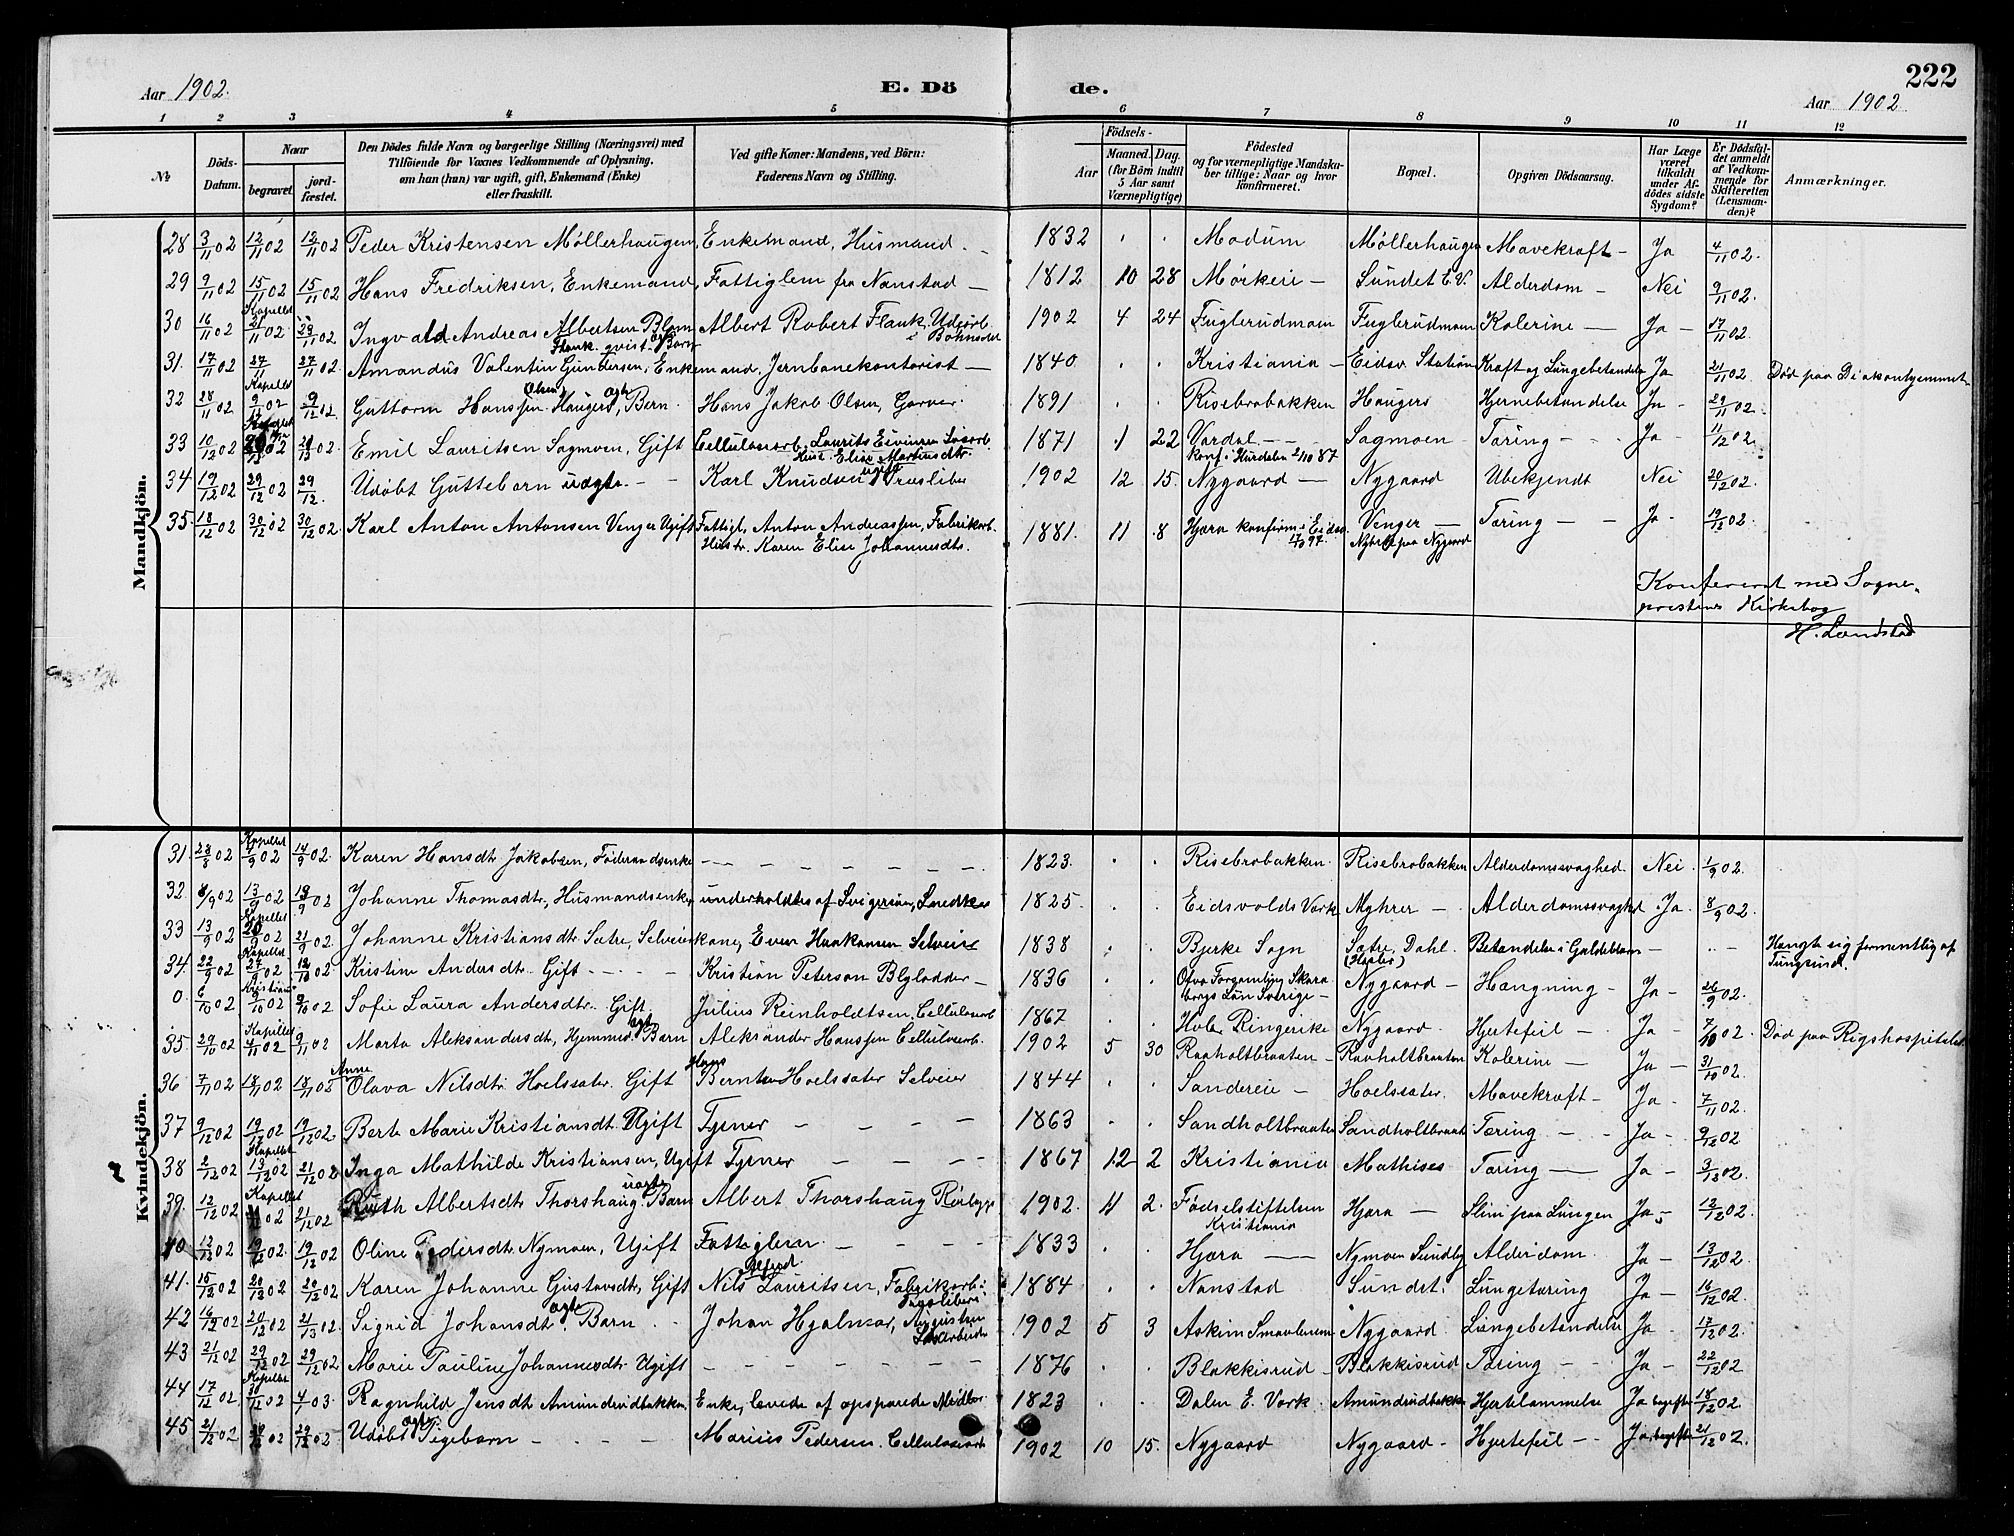 222
Aar 1902.
E. Dö
de.
Aar 1902
1 2 3 4 5 6 7 8 9 10 11 12
№
Döds-Datum.
Naar
begravet.
jord-fæstet.
Den Dödes fulde Navn og borgerlige Stilling (Næringsvei) med
Tilföiende for Voxnes Vedkommende af Oplysning,
om han (hun) var ugift, gift, Enkemand (Enke)
eller fraskilt.
Ved gifte Koner: Mandens, ved Börn:
Faderens Navn og Stilling.
Födsels-
Aar
Maaned. Dag.
(for Börn indtil
5 Aar samt
Værnepligtige)
Födested
og for værnepligtige Mandska-
ber tillige: Naar og hvor
konfirmeret.
Bopæl.
Opgiven Dödsaarsag.
Har Læge
været
tilkaldt
under Af-
dödes sidste
Sygdom?
Er Dödsfal-
det anmeldt
af Vedkom-
mende for
Skifteretten
(Lensman-
den)?
Anmærkninger.
Mandkjön.
28 3/11 02 12/11 02 12/11 02 Peder Kristensen Møllerhaugen, Enkemand, Husmand. — 1832 . . Modum Møllerhaugen Mavekræft — Ja 4/11 02.
29 9/11 02 15/11 02 15/11 02 Hans Fredriksen, Enkemand, Fattiglem fra Nanstad — 1812 10 28 Mørkeri — Sundet E.V. Alderdom — Nei 9/11 02.
Kapellet
30 16/11 02 21/11 02 23/11 02 Ingvald Andreas Albertsen Albert Robert Flank, 1902 4 24 Fuglerudmoen Fuglerudmoen Kolerine — Ja — 17/11 02.
31. 17/11 02 27/11 27/11 02. Amandus Valentin Gundersen, Enkemand, Jernbanekontorist — 1840 . . Kristiania — Eidsv. Station Kræft og Lungebetændelse Ja 21/11 02. Død paa Diakonhjemmet
Kapellet
32 28/11 02 9/12 02 9/12 02 Guttorm Hanssen Olsen Haugers, ægte Barn. Hans Jakob Olsen, Garver. 1891 . . Risebrobakken Haugers Hjernebetændelse Ja — 29/11 02.
Kapellet
33 10/12 02 21/12 02. Emil Lauritsen Sagmoen, Gift Cellulosearb. Laurits Eivinsen 1871 1 22 Vardal — Sagmoen — Tæring — Ja — 11/12 02.
Hust. Elise Martinusdtr. konf. i Hurdalen 2/10 87
34 19/12 02 29/12 02 29/12. Udøbt Guttebarn uægte — Karl Knudsen ugift Træsliber 1902 12 15. Nygaard — Nygaard Ubekjendt Nei 20/12 02.
35. 18/12 02 30/12 02 30/12 02 Karl Anton Antonsen Venger Ugift Fattigl. Anton Andreassen, Fabrikarb. 1881. 11 8 Hjera konfirm. i Eidsv. Venger — Tæring — Ja — 19/12 02.
Hustr. Karen Elise Johannesdtr.
Konfereret med Sogne-
prestens Kirkebog
H. Landstad
Kvindekjön.
Kapellet
31. 28/8 02 4/9 02 14/9 02. Karen Hansdtr. Jakobsen, Føderaadsenke — 1823. . . Risebrobakken. Risebrobakken Alderdomssvaghed. Nei 1/9 02.
32. 8/9 02 13/9 02 13/9 02 Johanne Thomasdtr, Husmandsenke, underholdtes af Svigersøn, Snedker 1825 . . Eidsvolds Værk Myhrer — Alderdomssvaghed Ja. 8/9 02.
Kapellet
33 13/9 02 20/9 02 21/9 02. Johanne Kristiansdtr. Sætre, Selveierkone, Even Haakonsen Selveier 1838 . . Bjerke Sogn Sætre, Dahl. Betændelse i Galdeblæren —
34. 22/9 02 Kapellet 27/9 02 12/10 02 Kristine Andersdtr. Gift — Kristian Peterson Blylodder — 1836 . . Otva Forsamling Skara Nygaard — Hængning — Ja — 26/9 02. Hængte sig formentlig af Tungsind.
borgs Län Sverige —
0. 6/10 02 Kristiania 9/10 02 9/10 02 Sofie Laura Andersdtr. Gift Julius Reinholdtsen, Cellulosearb 1867 . . Hole Ringerike Nygaard. Hjertefeil — Ja — 7/10 02. Død paa Rigshospitalet
35. 29/10 02 Kapellet 4/11 02 9/11 02 Marta Aleksandersdtr, Hjemmed. ægte Barn Aleksander Hanssen Cellulosearb. 1902 5 30 Raaholtbraaten — Raaholtbraaten Kolerine — Ja — 31/10 02.
36 7/11 02 18/11 02 18/11 02 Anne Olava Nilsdtr. Hoelssæter. Gift Hans Berntsen Hoelssæter Selveier 1844 . . Sandereie — Hoelssæter. Mavekræft — Ja — 7/11 02.
37 9/12 02 19/12 02 19/12 02. Berte Marie Kristiansdtr. Ugift Tjener — 1863 . . Sandholtbraaten Sandholtbraaten Tæring — Ja — 9/12 02
38 2/12 02 Kapellet 13/12 02 21/12 02 Inga Mathilde Kristiansen, Ugift Tjener — 1867 12 2 Kristiania Mathises Tæring — Ja — 3/12 02.
39. 12/12 02 Kapellet 02 21/12 02 Ruth Albertsdtr. Thorshaug uægte Barn Albert Thorshaug 1902. 11 2. Fødselstiftelsen Kristiania Hjera — Slim paa Lungen Ja — 12/12 02.
40 12/12 02 19/12 02. 19/12 02 Oline Pedersdtr. Nymoen, Ugift Fattiglem. — 1833 . . Hjera — Nymoen Sundby Alderdom. Ja — 13/12 02.
41. 15/12 02 20/12 02 20/12 02 Karen Johanne Gustavsdtr, Gift Nils Alfred Lauritsen, Fabrikarb. 1884 . . Nanstad Sundet. Lungetæring Ja — 16/12 02.
42 16/12 02 20/12 02 21/12 02. Sigrid Johansdtr. ægte Barn. — Johan Hjalmar, Augustsen 1902 5 3 Askim Smaalenene Nygaard. Lungebetændelse Ja. 17/12 02.
43 21/12 02 29/12 02 29/12 02 Marie Pauline Johannesdtr Ugift — 1876 . . Blakkisrud — Blakkisrud Tæring — Ja — 22/12 02
44 17/12 02. Kapellet 30/12 02 4/1 03. Ragnhild Jensdtr. Amundrudbakken, Enke, levede af opsparede Midler. 1823 . . Dalen E. Værk. Amundrudbakken Hjertelammelse Ja 18/12 02.
45 21/12 02 29/12 02 29/12 02. Udøbt ægte Pigebarn — Marius Pedersen. Cellulosearb 1902 10 15. Nygaard Nygaard — Hjertefeil — Ja 21/12 02.